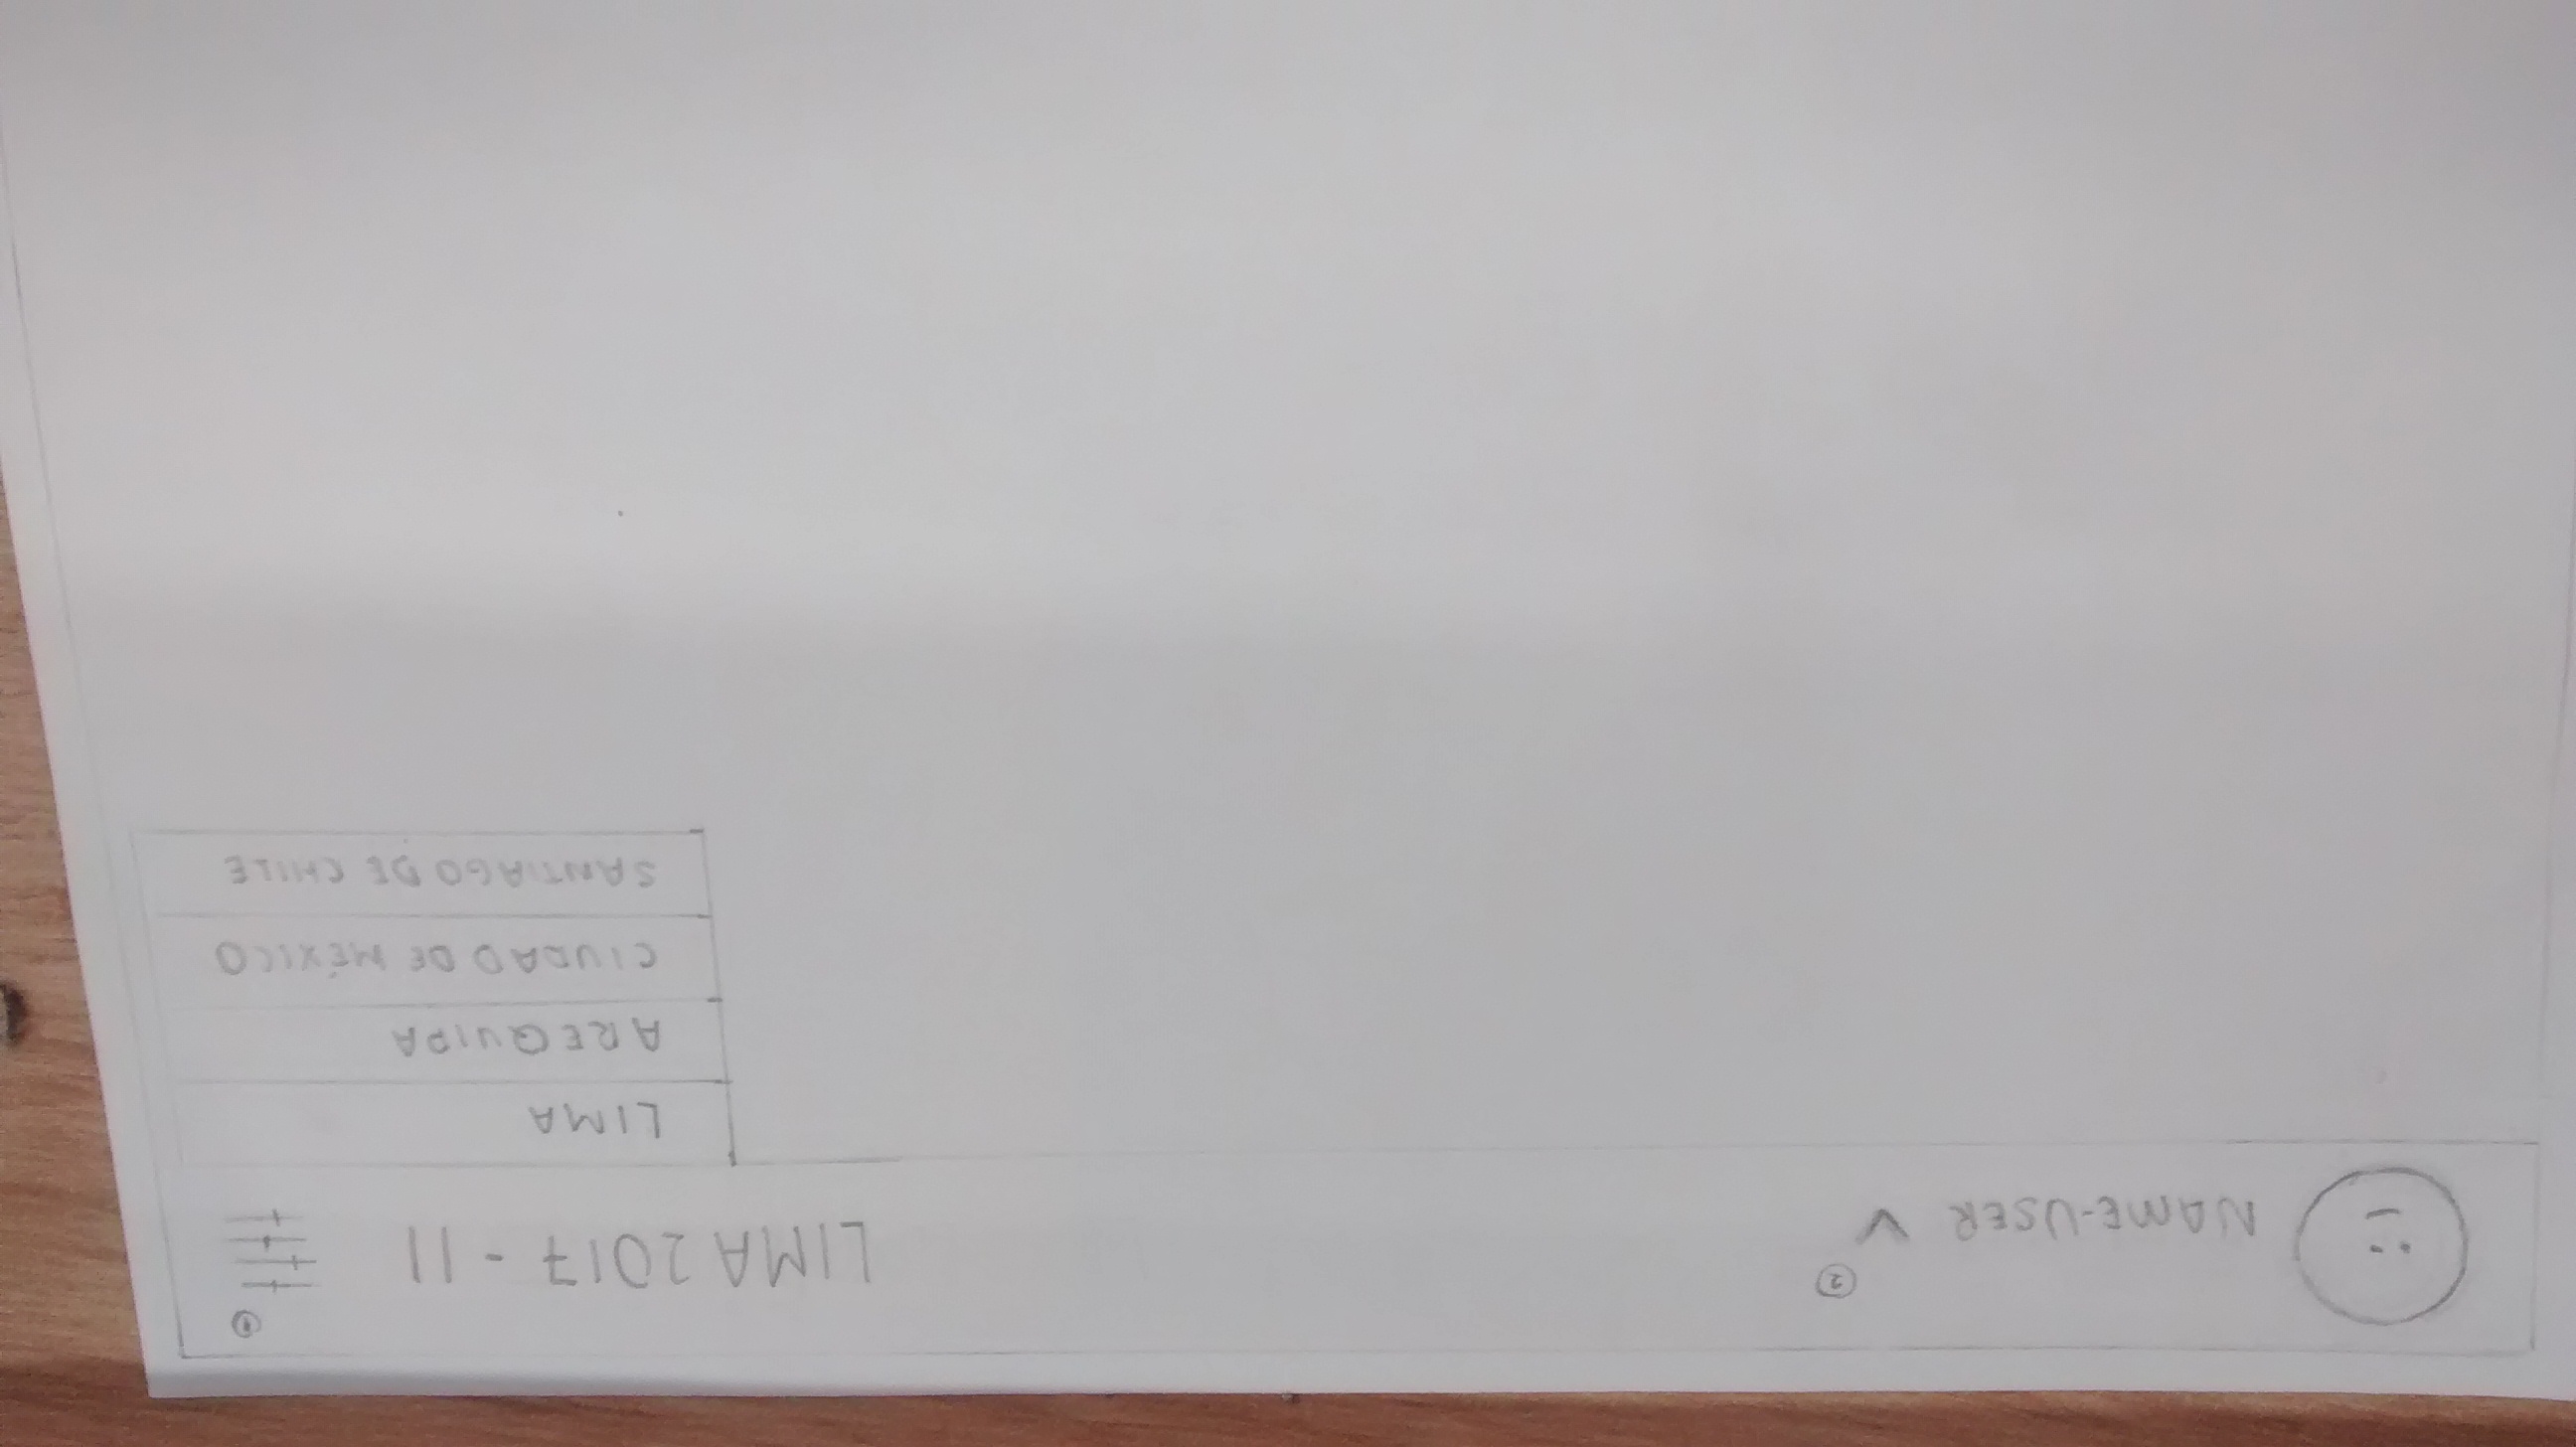 ②
NAME-USER V
LIMA 2017 - 11
①
LIMA
AREQUIPA
CIUDAD DE MÉXICO
SANTIAGO DE CHILE